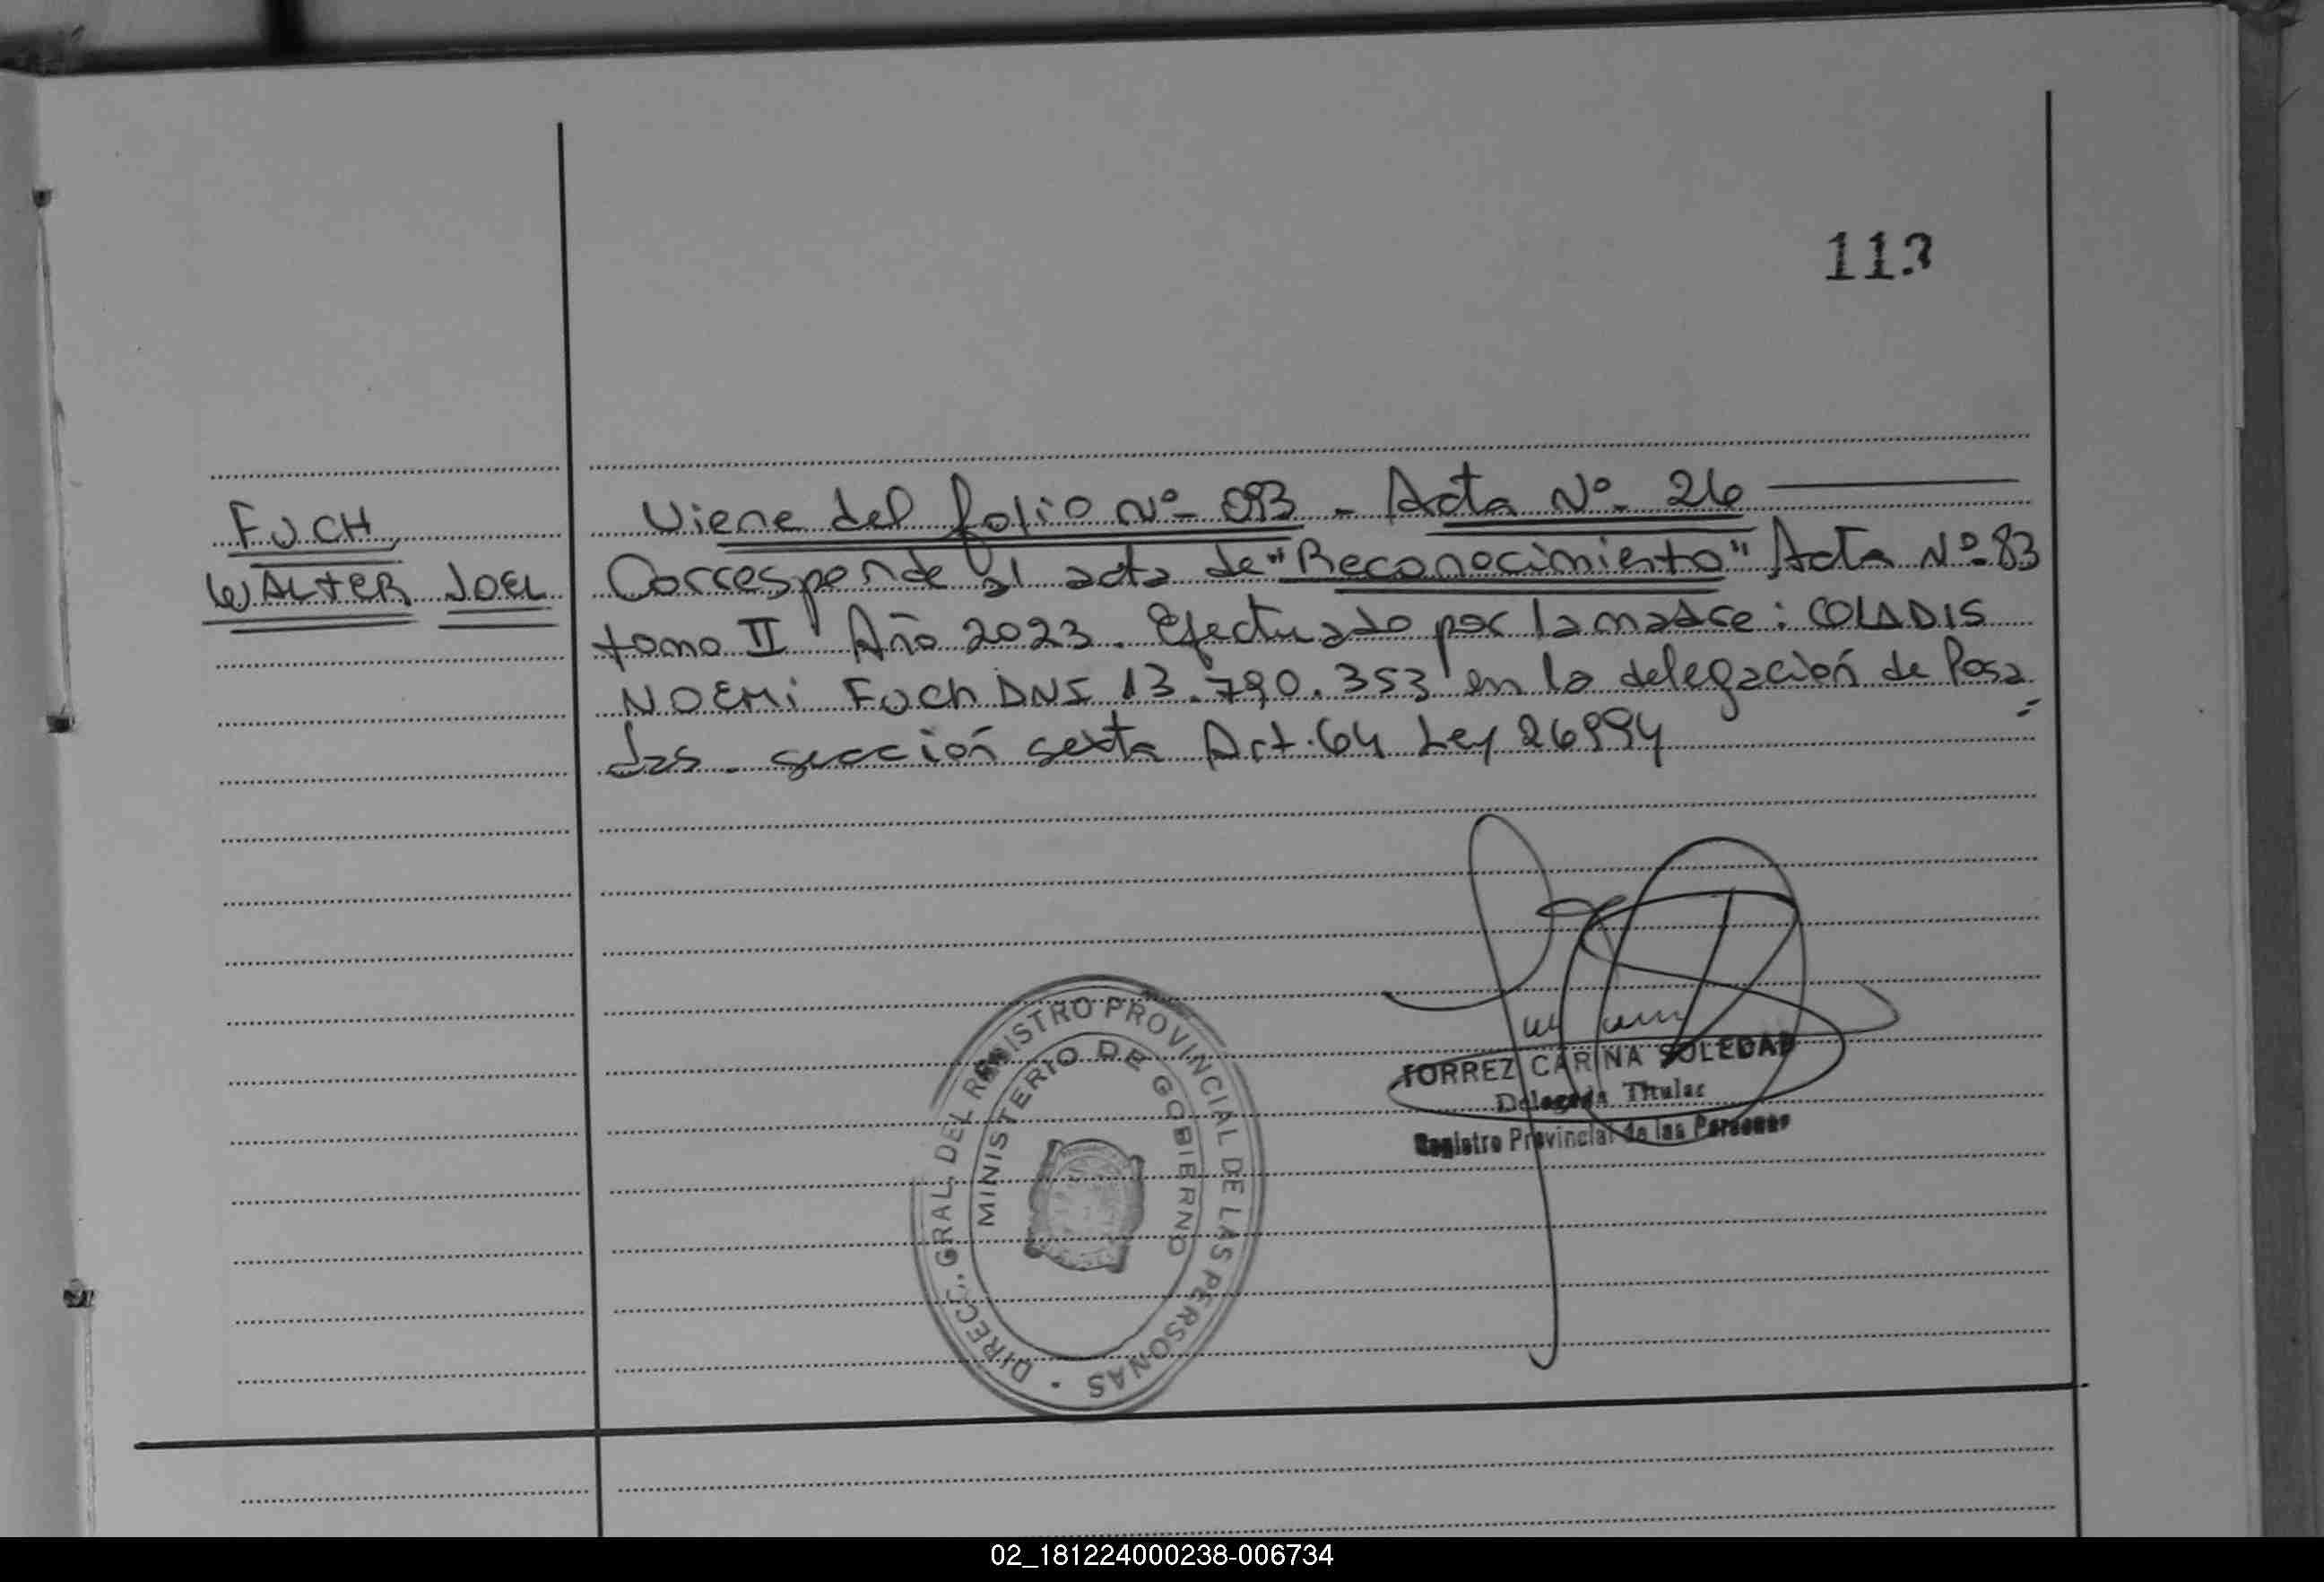 113
FUCH,
WALTER JOEL
Viene del folio Nº 093 - Acta Nº 26
Corresponde al acta de "Reconocimiento" Acta Nº 83
tomo II Año 2023. Efectuado por la madre: COLADIS
NOEMi FUCH DNI 13.790.353 en la delegación de Posa=
das. sección sexta Art. 64 Ley 26994
TORREZ CARINA SOLEDAD
Delegada Titular
Registro Provincial de las Personas
DIRECC. GRAL. DEL REGISTRO PROVINCIAL DE LAS PERSONAS
MINISTERIO DE GOBIERNO
02_181224000238-006734